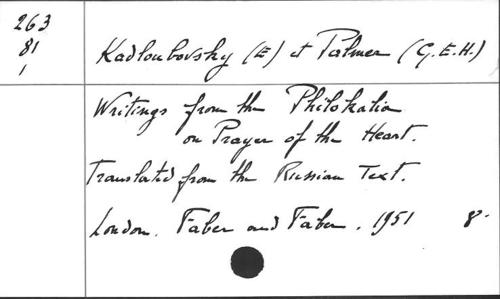 263
81
1
Kadloubovsky (E) et Palmer (G.E.H.)
Writings from the Philokalia
on Prayer of the Heart.
Translated from the Russian Text.
London. Faber and Faber. 1951 8°